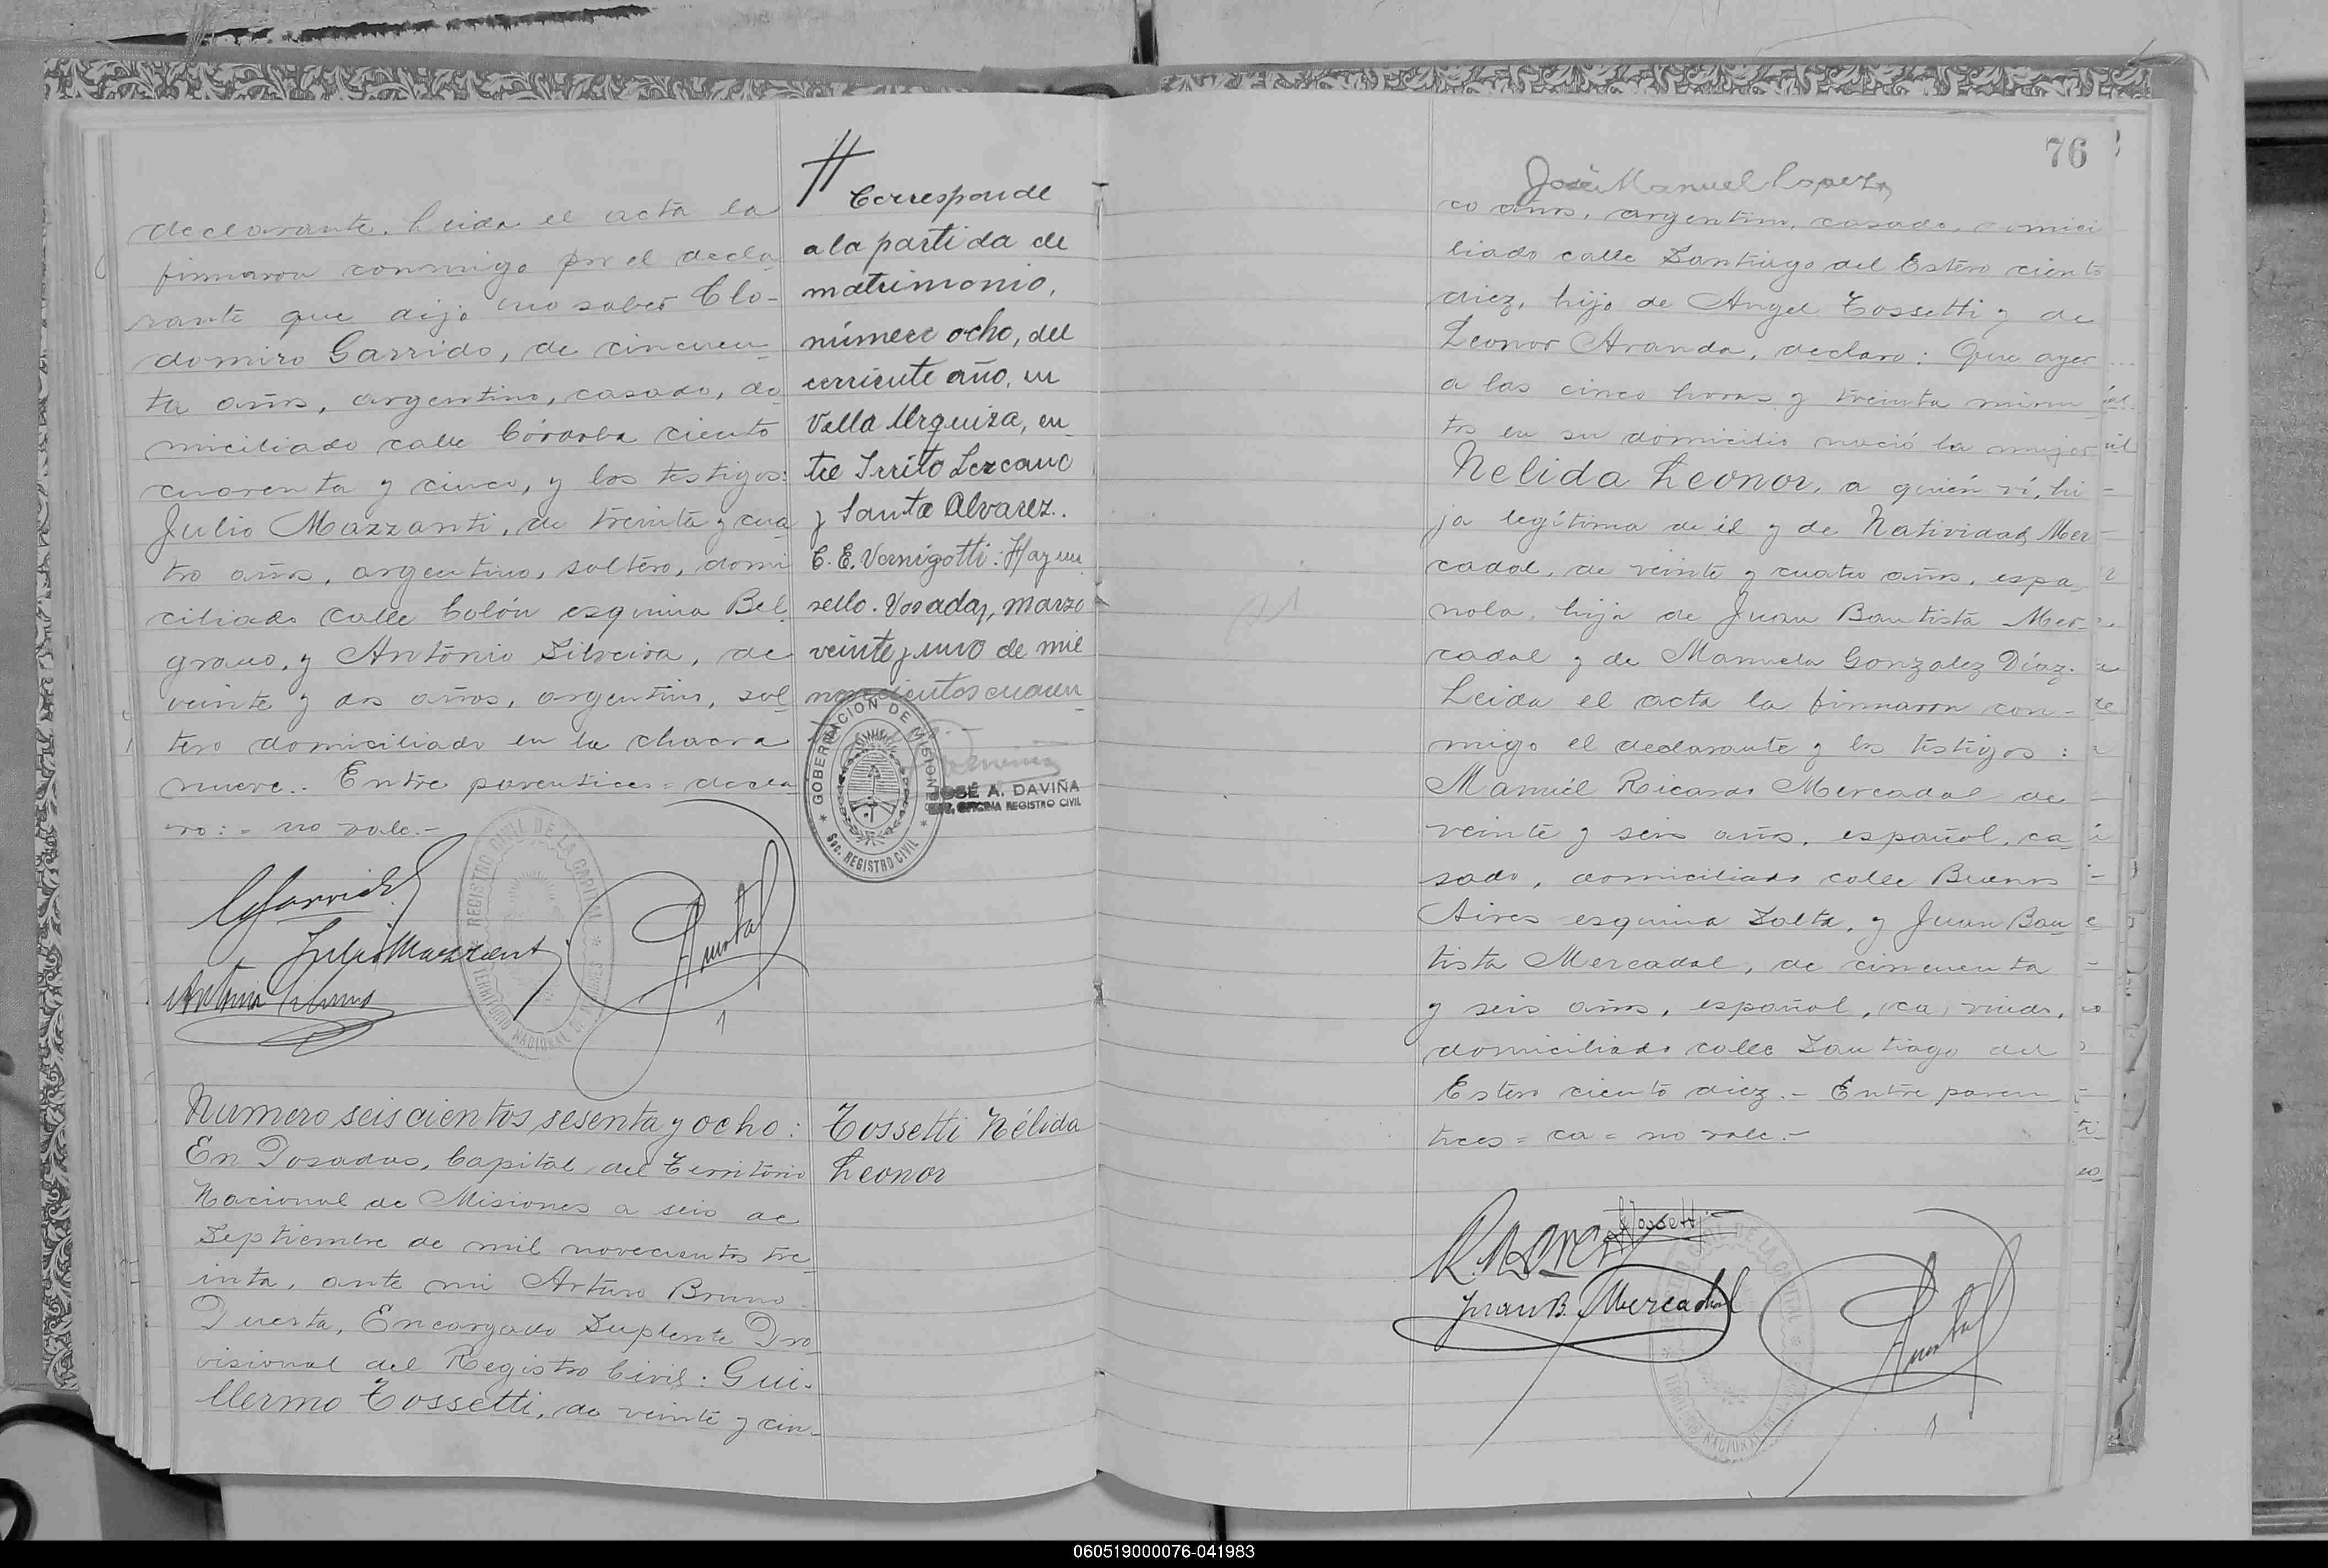 declarante. Leida el acta la
firmaron conmigo por el decla
rante que dijo no saber Clo-
domiro Garrido, de cincuen
ta años, argentino, casado, do
miciliado calle Córdoba ciento
cuarenta y cinco, y los testigos:
Julio Mazzanti, de treinta y cua
tro años, argentino, soltero, domi
ciliado calle Colón esquina Bel
grano, y Antonio Silveira, de
veinte y dos años, argentino, sol
tero domiciliado en la chacra
nueve.. Entre parentices = decla
ro: = no vale.-
Julio Mazzanti
REGISTRO CIVIL DE LA CAPITAL
TERRITORIO NACIONAL DE MISIONES
Numero seiscientos sesenta y ocho:
En Posadas, Capital del Territorio
Nacional de Misiones a seis de
Septiembre de mil novecientos tre
inta, ante mi Arturo Bruno
Puesta, Encargado Suplente Pro
visional del Registro Civil: Gui-
llermo Tossetti, de veinte y cin-
Corresponde
a la partida de
matrimonio,
número ocho, del
corriente año, en
Villa Urquiza, en
tre Irrito Lezcano
y Santa Alvarez..
C. E. Vernigotti: Hay un
sello. Posadas, marzo
veinte y uno de mil
novecientos cuaren
GOBERNACION DE MISIONES
Sec. REGISTRO CIVIL
JOSÉ A. DAVIÑA
OFICINA REGISTRO CIVIL
Tossetti Nélida
Leonor
76
José Manuel Lopez
co años, argentino, casado, domici
liado calle Santiago del Estero ciento
diez, hijo de Angel Tossetti y de
Leonor Aranda, declaro: Que ayer
a las cinco horas y treinta minu
tos en su domicilio nació la mujer
Nelida Leonor, a quién ví, hi
ja legítima de él y de Natividad Mer
cadal, de veinte y cuatro años, espa
nola, hija de Juan Bautista Mer-
cadal y de Manuela Gonzalez Díaz.
Leida el acta la firmaron con-
migo el declarante y los testigos:
Manuél Ricardo Mercadal de
veinte y seis años, español, ca
sado, domiciliado calle Buenos
Aires esquina Salta, y Juan Bau
tista Mercadal, de cincuenta
y seis años, español, (ca) viudo,
domiciliado calle Santiago del
Estero ciento diez.- Entre paren
tices = ca = no vale.-
Juan B. Mercadal
060519000076-041983